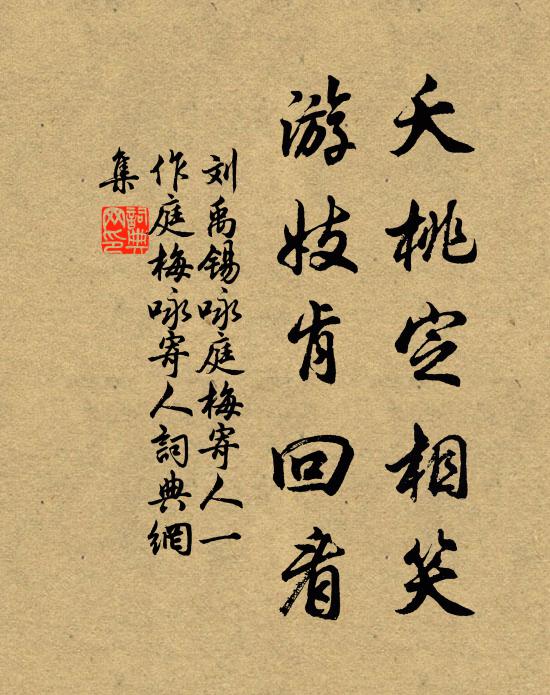 夭桃定相笑
游妓肯回看
刘禹锡咏庭梅寄人一
作庭梅咏寄人詞典網
集
詞典网印